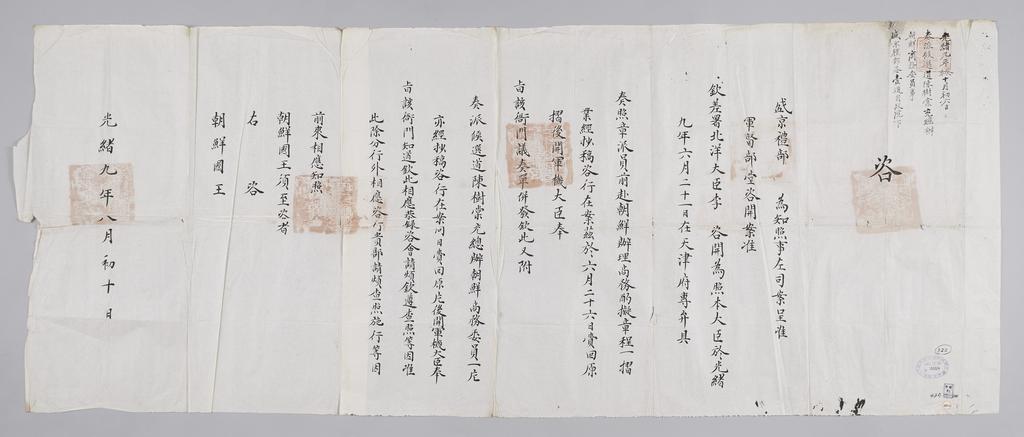 光緒九年十月初六日
奏派候選道陳樹棠
咨
盛京禮部　為知照事左司案呈准
軍督部堂咨開案准
欽差署北洋大臣李　咨開為照本大臣於光緒
九年六月二十一日在天津府專弁具
奏照章派員前赴朝鮮辦理商務酌擬章程一摺
業經抄稿咨行在案茲於六月二十六日賫回原
摺後開軍機大臣奉
旨該衙門議奏單併發欽此又附
奏派候選道陳樹棠充總辦朝鮮商務委員一片
亦經抄稿咨行在案同日賫回原片後開軍機大臣奉
旨該衙門知道欽此相應恭錄咨會請煩欽遵查照等因准
此除分行外相應咨行貴部請煩查照施行等因
前來相應知照
朝鮮國王須至咨者
右咨
朝鮮國王
光緒九年八月初十日